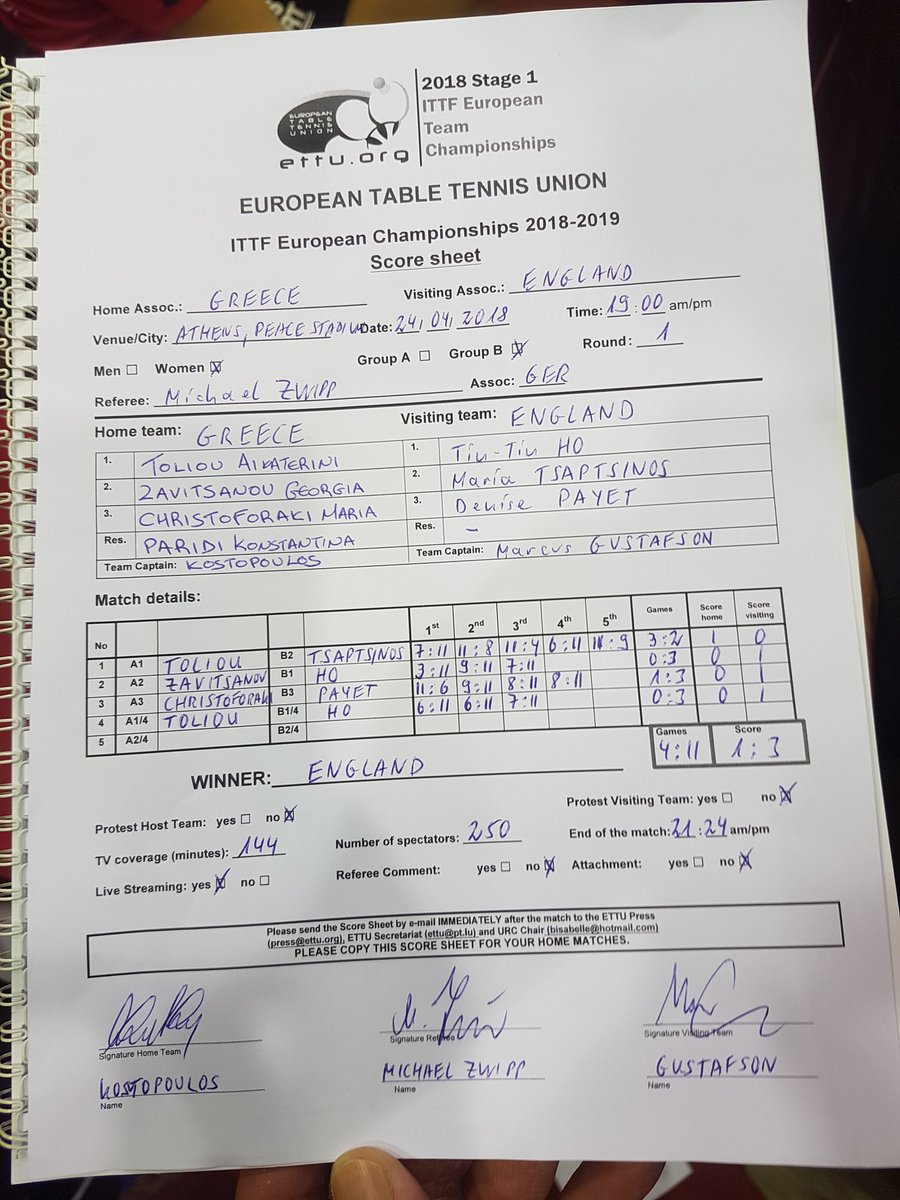 EUROPEAN
TABLE
TENNIS
UNION
ettu.org
2018 Stage 1
ITTF European
Team
Championships
EUROPEAN TABLE TENNIS UNION
ITTF European Championships 2018-2019
Score sheet
Home Assoc.: GREECE Visiting Assoc.: ENGLAND
Venue/City: ATHENS, PEACE STADIUM Date: 24/04/2018 Time: 19:00 am/pm
Men ☐ Women ☒ Group A ☐ Group B ☒ Round: 1
Referee: Michael ZWIPP Assoc: GER
Home team: GREECE Visiting team: ENGLAND
1. TOLIOU AIKATERINI 1. Tin-Tin HO
2. ZAVITSANOU GEORGIA 2. Maria TSAPTSINOS
3. CHRISTOFORAKI MARIA 3. Denise PAYET
Res. PARIDI KONSTANTINA Res. –
Team Captain: KOSTOPOULOS Team Captain: Marcus GUSTAFSON
Match details:
No 1st 2nd 3rd 4th 5th Games Score home Score visiting
1 A1 TOLIOU B2 TSAPTSINOS 7:11 11:8 11:4 6:11 11:9 3:2 1 0
2 A2 ZAVITSANOV B1 HO 3:11 9:11 7:11 0:3 0 1
3 A3 CHRISTOFORAKI B3 PAYET 11:6 9:11 8:11 8:11 1:3 0 1
4 A1/4 TOLIOU B1/4 HO 6:11 6:11 7:11 0:3 0 1
5 A2/4 B2/4
Games Score
4:11 1:3
WINNER: ENGLAND
Protest Host Team: yes ☐ no ☒ Protest Visiting Team: yes ☐ no ☒
TV coverage (minutes): 144 Number of spectators: 250 End of the match: 21:24 am/pm
Live Streaming: yes ☒ no ☐ Referee Comment: yes ☐ no ☒ Attachment: yes ☐ no ☒
Please send the Score Sheet by e-mail IMMEDIATELY after the match to the ETTU Press
(press@ettu.org), ETTU Secretariat (ettu@pt.lu) and URC Chair (bisabelle@hotmail.com)
PLEASE COPY THIS SCORE SHEET FOR YOUR HOME MATCHES.
Signature Home Team Signature Referee Signature Visiting Team
KOSTOPOULOS MICHAEL ZWIPP GUSTAFSON
Name Name Name